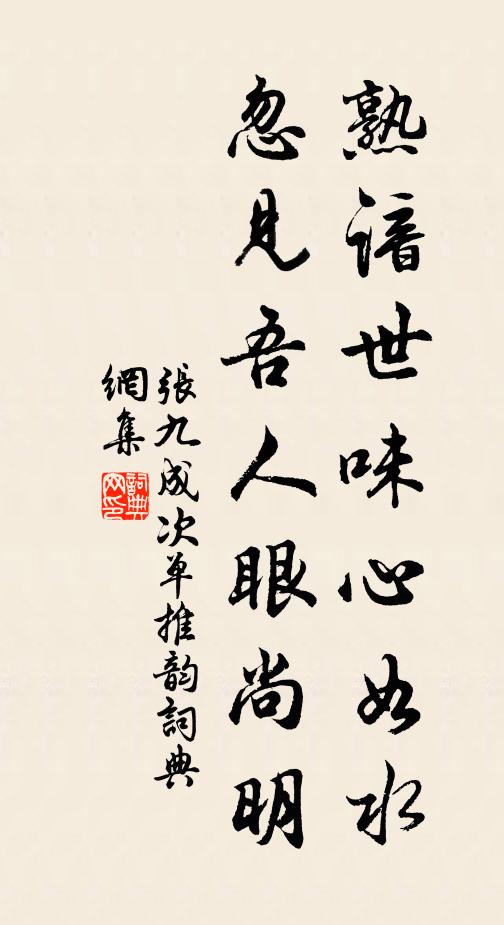 熟諳世味心如水
忽見吾人眼尚明
張九成次单推韵詞典
網集
詞典
网印